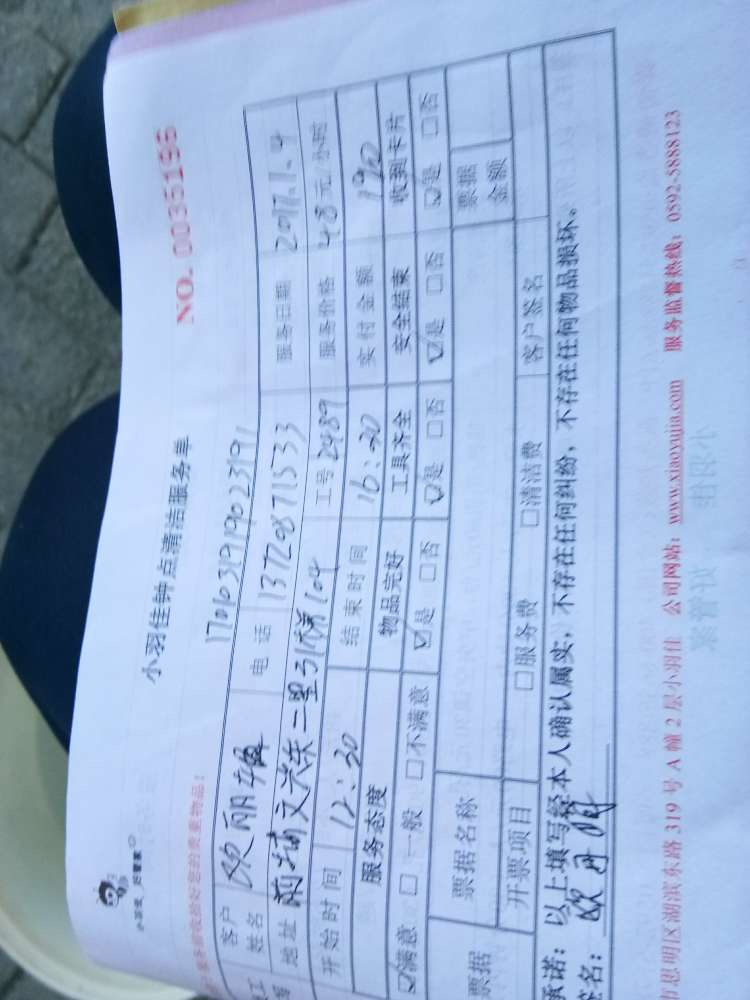 小羽佳 好管家
小羽佳钟点清洁服务单
NO. 0035195
收拾好您的贵重物品!
1701031919023191
客户姓名 欧丽 电话 13720871533 服务日期 2017.1.4
地址 前埔文兴东二里31梯104 工号 2489 服务价格 48元/小时
开始时间 12:30 结束时间 16:30 实付金额 192
服务态度 物品完好 工具齐全 安全结束 收到卡片
☑满意 □一般 □不满意 ☑是 □否 ☑是 □否 ☑是 □否 ☑是 □否
票据 票据名称 票据金额
开票项目 □服务费 □清洁费 客户签名
承诺:以上填写经本人确认属实,不存在任何纠纷,不存在任何物品损坏。
签名:欧丽
思明区湖滨东路319号A幢2层小羽佳 公司网站:www.xiaoyujia.com 服务监督热线:0592-5888123